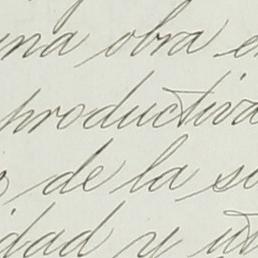 una obra e
productiva
de la su
dad y ut